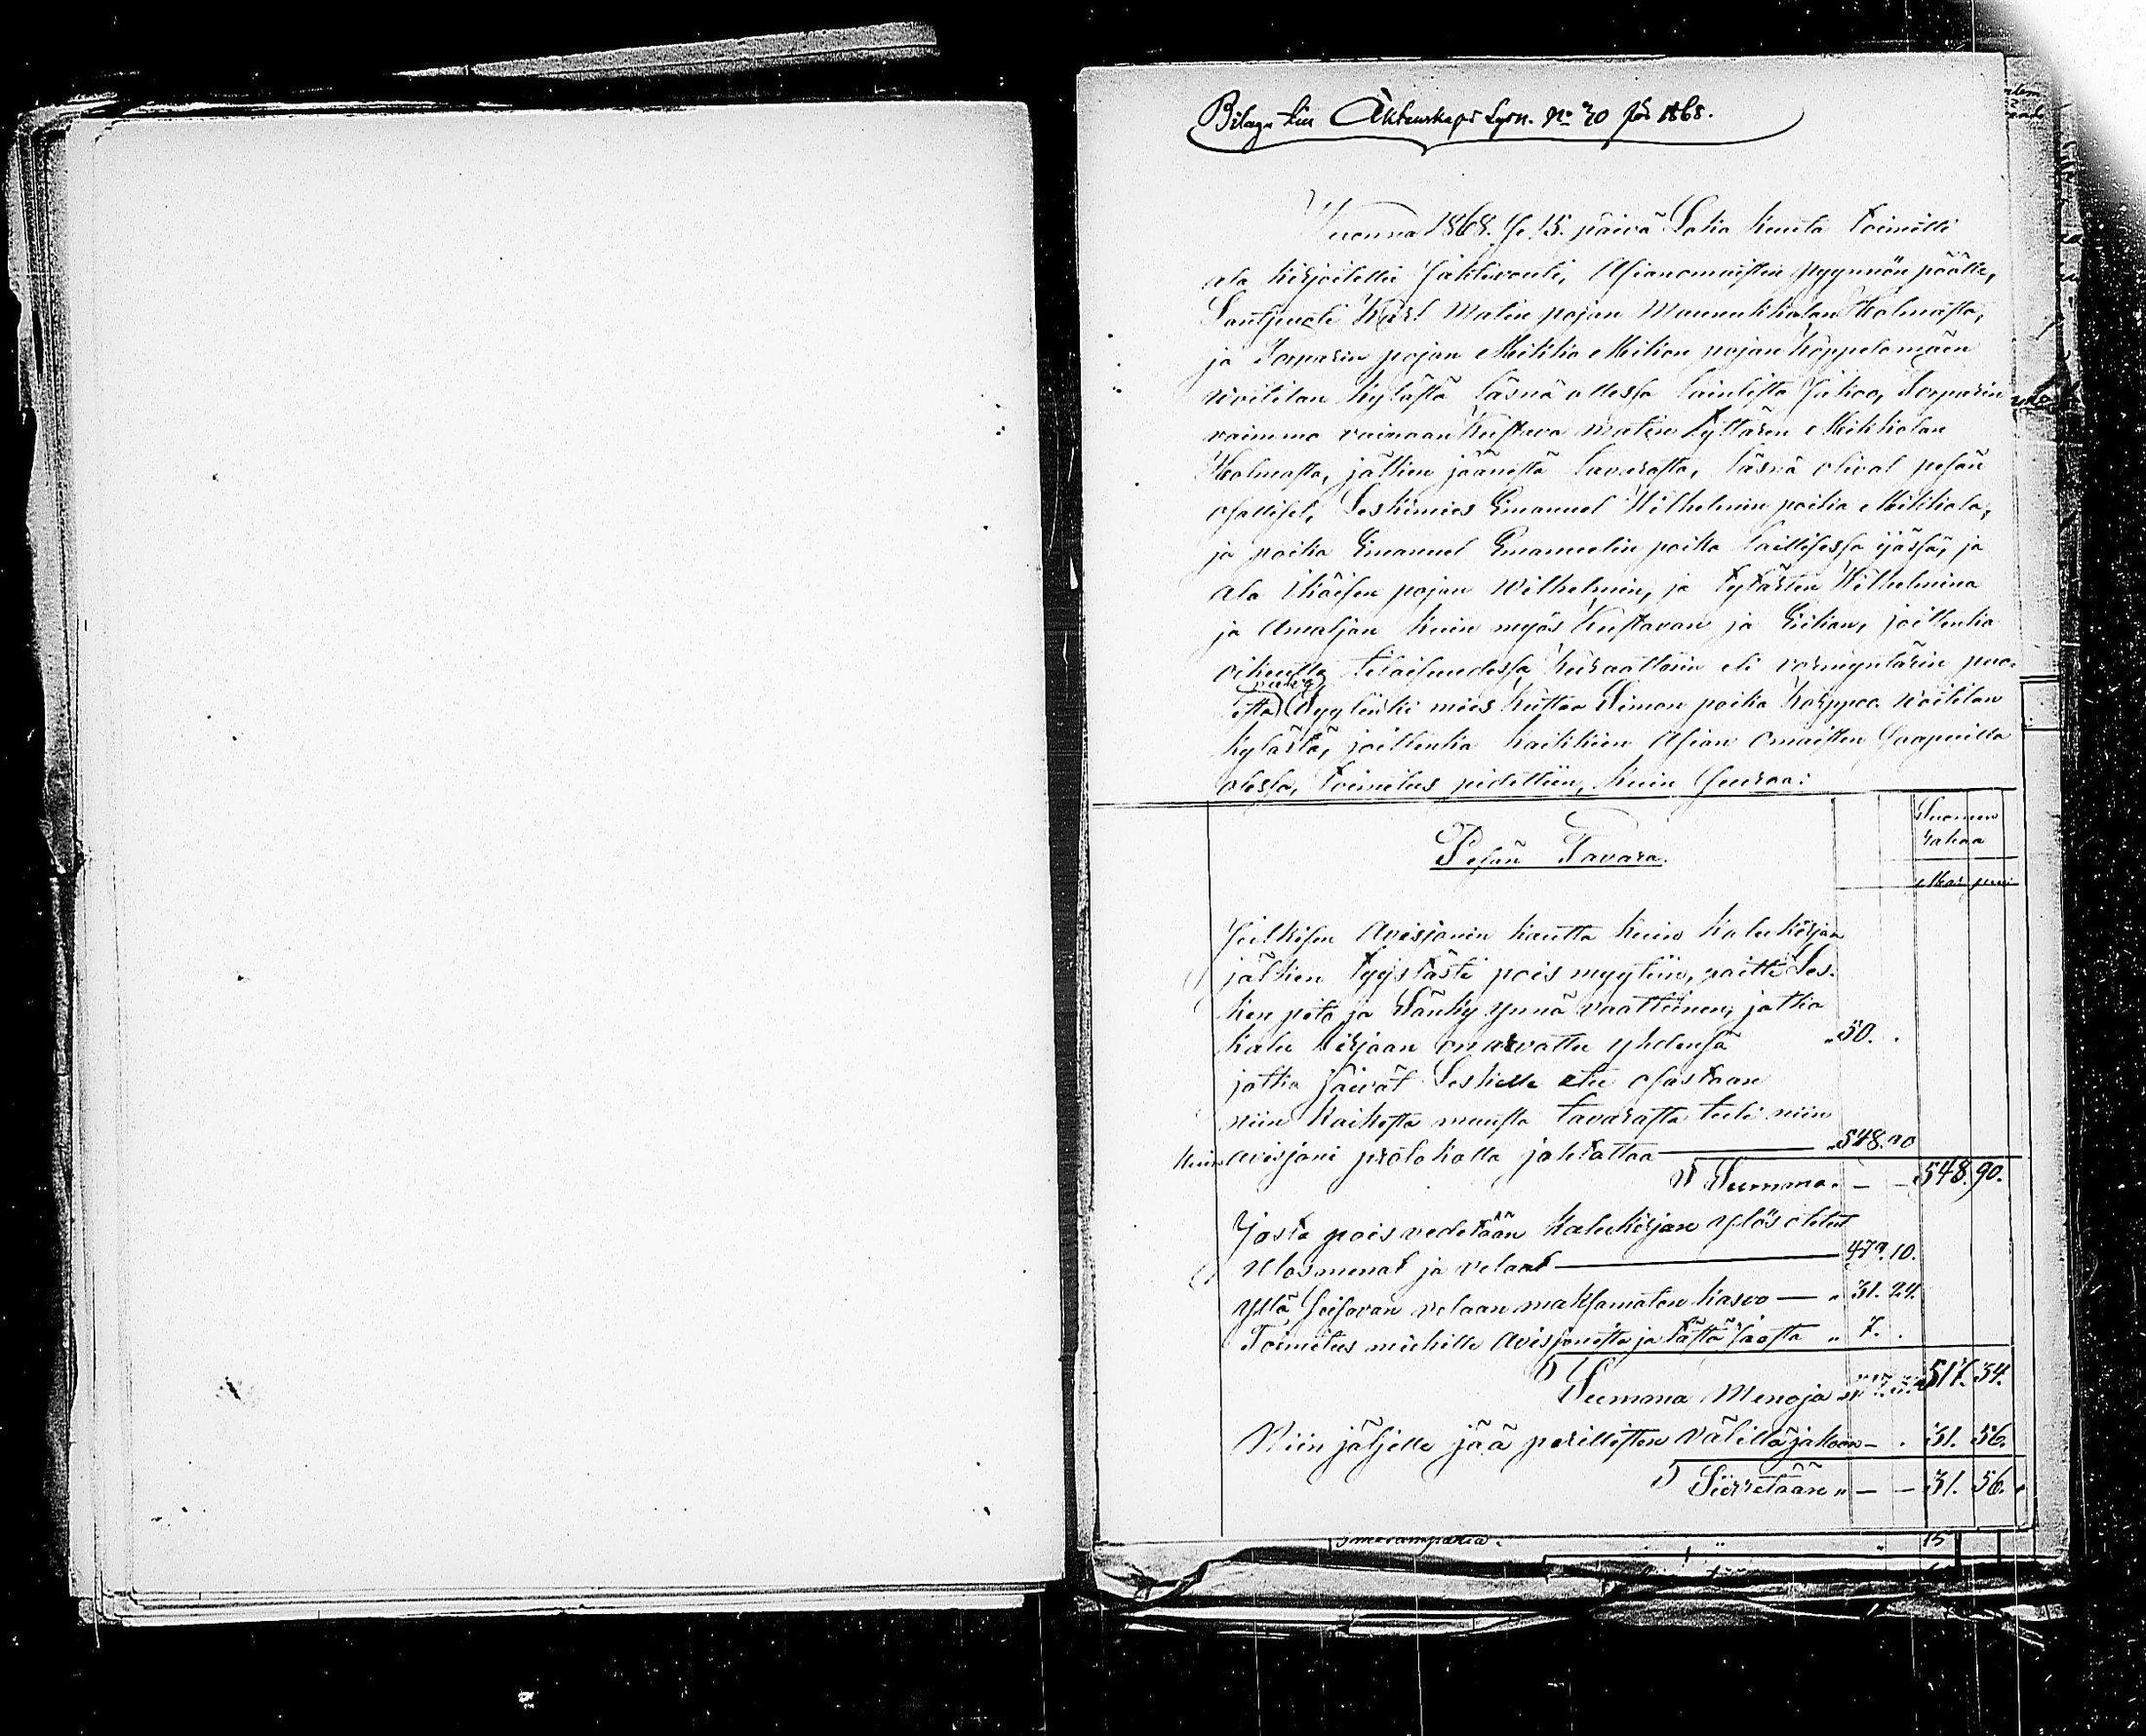 Bilaga till Äktenskaps Lysn. No 70 för 1868.
Wuonna 1868. Se 15. päivä Loka kuuta toimitti
ala kirjoitettu Siltivouti, Asianomaisten pyynnön päälle,
Karl Matin pojan Mannukkalan Kolmasta,
ja Torparin pojan Mikkia Mikion pojan Koppelomäen
Woitilan Kylästä läsnä ollessa lainlista Jakoa, Torparin
vaimmo vainaan Kustava Matin tyttären Mikkolan
Kolmasta, jälkien jäänestä tavarasta, läsnä olivat pesän
osalliset, Leskimies Emanuel Wilhelmin poika Mikkola,
ja poika Emanuel Emanuelin poika laillisessa ijässä, ja
ala ikäisen pojan Wilhelmin, ja tytärten Wilhelmina
ja Amaljan kuin myös Kustavan ja Eikan, joittenka
oikeutta tilaisuudessa kuraattorin eli vormyntärin puo-
lesta Syytinki mies Kustaa Simon poika Karppa Woitilan
kylästä, joittenka kaikkien Asian Omaisten Saapuilla
olessa, toimitus pidettiin, kuin Seuraa:
Suomen
rahaa
Pesän Tavara.
Mar penni
Julkisen Avisjonin kautta kuin kalukirjan
jälkien tyystästi pois myytiin, paitti Les-
ken pito ja Sänky ynnä vaatteinen, jotka
kalu kirjaan on arvattu yhdensä „50. .
jotka jäivät Leskelle etu osastaan
niin kaikesta muusta tavarasta tuli niin
kuin avisjoni protokolla johtattaa — „548.90
Summa. — — 548. 90.
Josta pois vedetään Kalukirjan ylös otetut
Ulosmenat ja velaat — 479. 10.
Yllä Seisovan velaan maksamaton kasvo — „ 31. 24.
Toimitus miehille Avisjonista ja tästä Jaosta „ 7. .
Summa Menoja 517. 34.
Niin jäljelle jää perillisten välillä jakoon — . 31. 56.
Siirretään „ — — 31. 56.